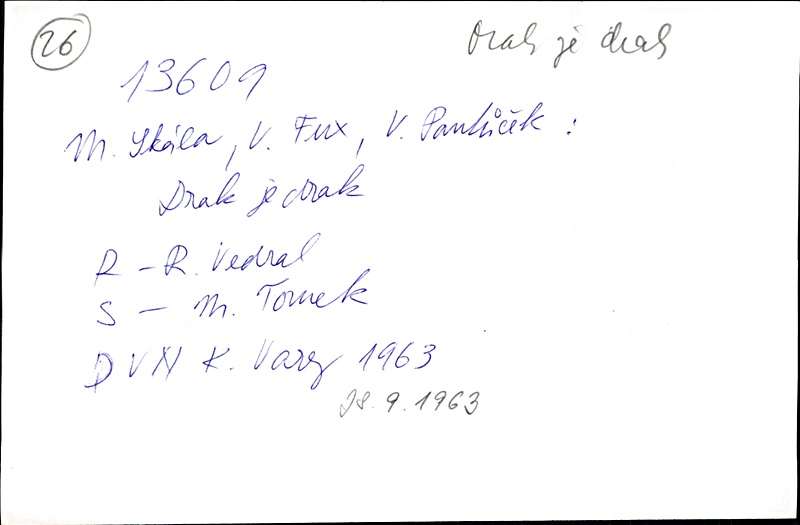 26
Drak je drak
13609
M. Skála, V. Fux, V. Pantůček :
Drak je drak
R - R. Vedral
S - M. Tomek
D VN K. Vary 1963
28. 9. 1963